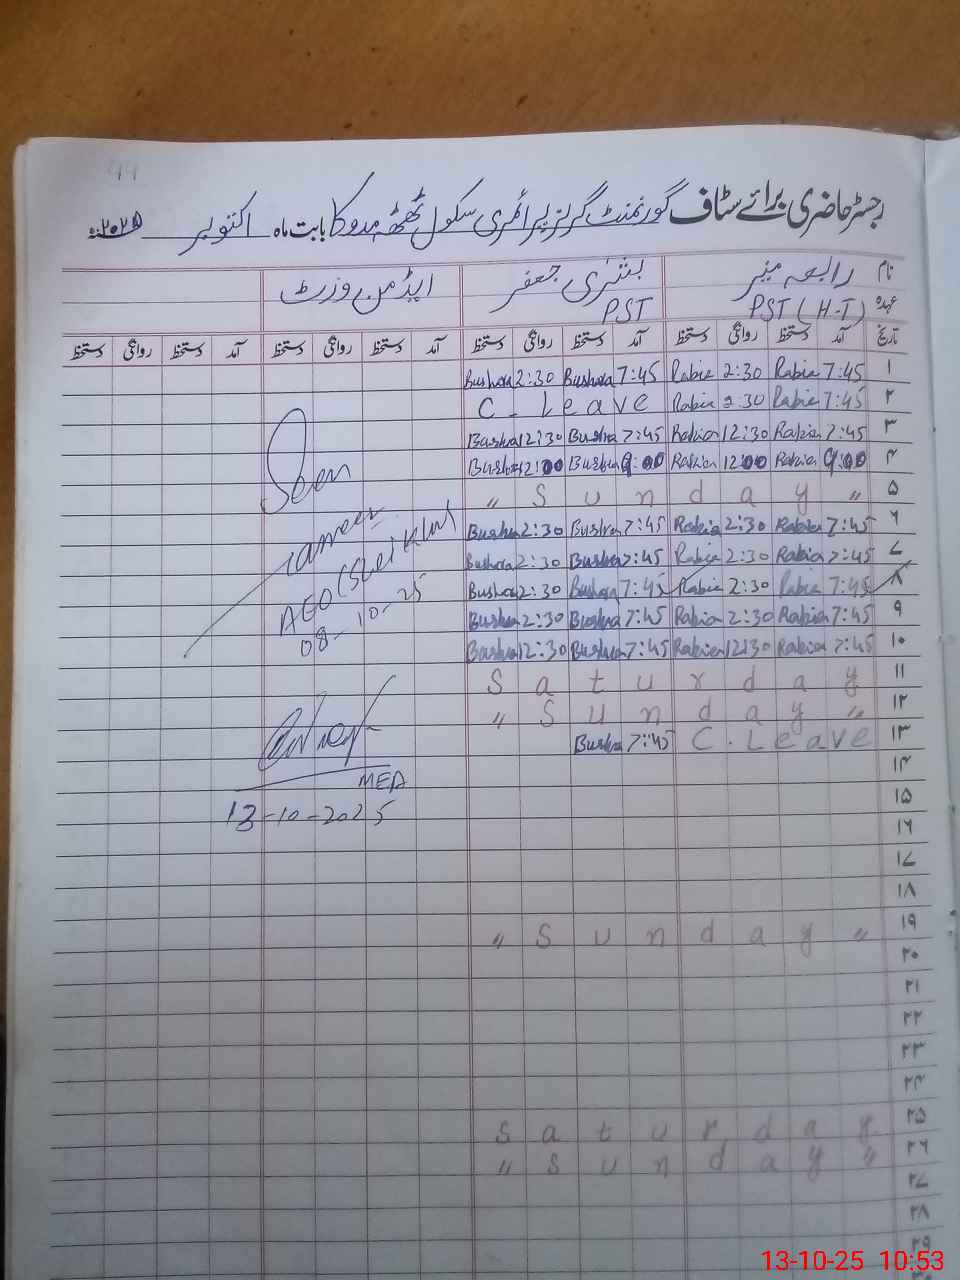 44
رجسٹر حاضری برائے سٹاف گورنمنٹ گرلز پرائمری سکول ٹھٹھہ مدوکا بابت ماہ اکتوبر ۲۰۲۵ء
نام رابعہ منیر بشرٰی جعفر ایڈمن وزٹ
عہدہ PST (H-T) PST
تاریخ آمد دستخط روانگی دستخط آمد دستخط روانگی دستخط آمد دستخط روانگی دستخط آمد دستخط روانگی دستخط
Bushra 2:30 Bushra 7:45 Rabia 2:30 Rabia 7:45 ۱
C. Leave Rabia 2:30 Rabia 7:45 ۲
Bushra 12:30 Bushra 7:45 Rabia 12:30 Rabia 7:45 ۳
Bushra 12:00 Bushra 9:00 Rabia 12:00 Rabia 9:00 ۴
" Sunday " ۵
Bushra 2:30 Bushra 7:45 Rabia 2:30 Rabia 7:45 ۶
Bushra 2:30 Bushra 7:45 Rabia 2:30 Rabia 7:45 ۷
Bushra 2:30 Bushra 7:45 Rabia 2:30 Rabia 7:45 ۸
Bushra 2:30 Bushra 7:45 Rabia 2:30 Rabia 7:45 ۹
Bushra 12:30 Bushra 7:45 Rabia 12:30 Rabia 7:45 ۱۰
Saturday ۱۱
" Sunday " ۱۲
Bushra 7:45 C. Leave ۱۳
۱۴
۱۵
۱۶
۱۷
۱۸
" Sunday " ۱۹
۲۰
۲۱
۲۲
۲۳
۲۴
Saturday ۲۵
" Sunday " ۲۶
۲۷
۲۸
۲۹
Seen
AEO
08-10-25
MEA
13-10-2025
13-10-25 10:53